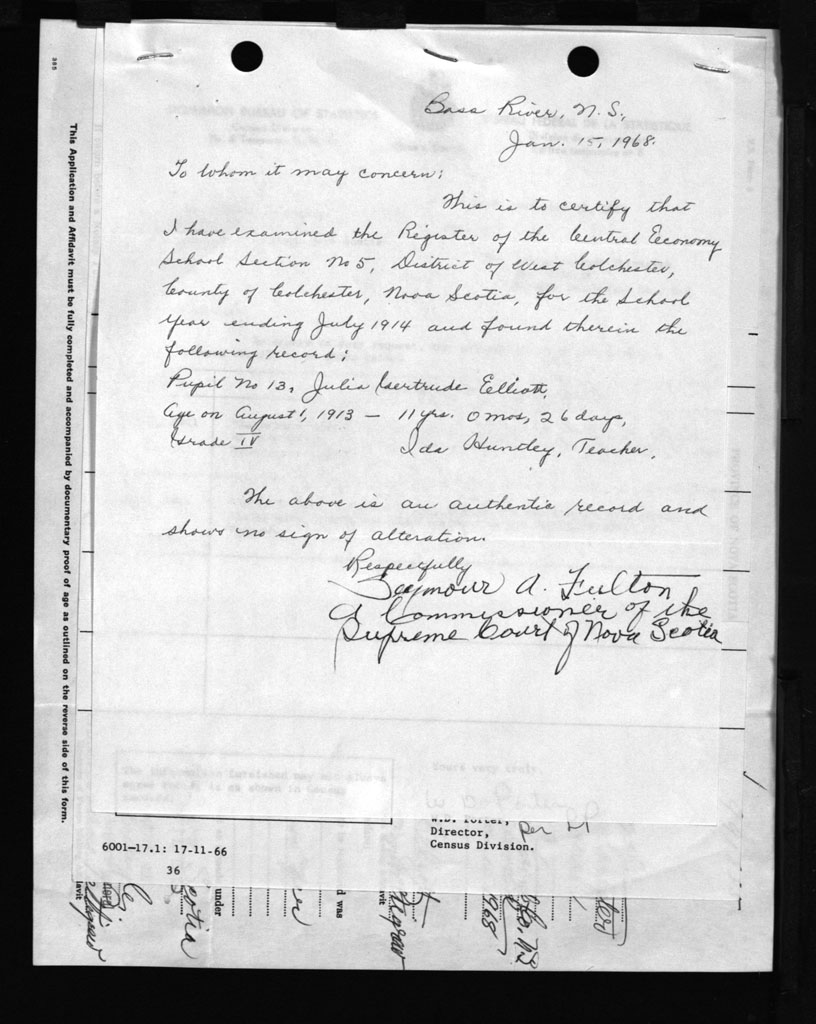 Bass River, N.S.,
Jan. 15, 1968.
To whom it may concern:
This is to certify that
I have examined the Register of the Central Economy
School Section No 5, District of West Colchester,
County of Colchester, Nova Scotia, for the School
Year ending July 1914 and found therein the
following record:
Pupil No 13, Julia Gertrude Elliott,
Age on August 1, 1913 — 11 yrs. 0 mos, 26 days,
Grade IV
Ida Huntley, Teacher.
The above is an authentic record and
shows no sign of alteration.
Respectfully
Seymour A. Fulton
A Commissioner of the
Supreme Court of Nova Scotia
Yours very truly,
W.D. Porter,
per
Director,
Census Division.
6001—17.1: 17-11-66
36
This Application and Affidavit must be fully completed and accompanied by documentary proof of age as outlined on the reverse side of this form.
under
d was
1968